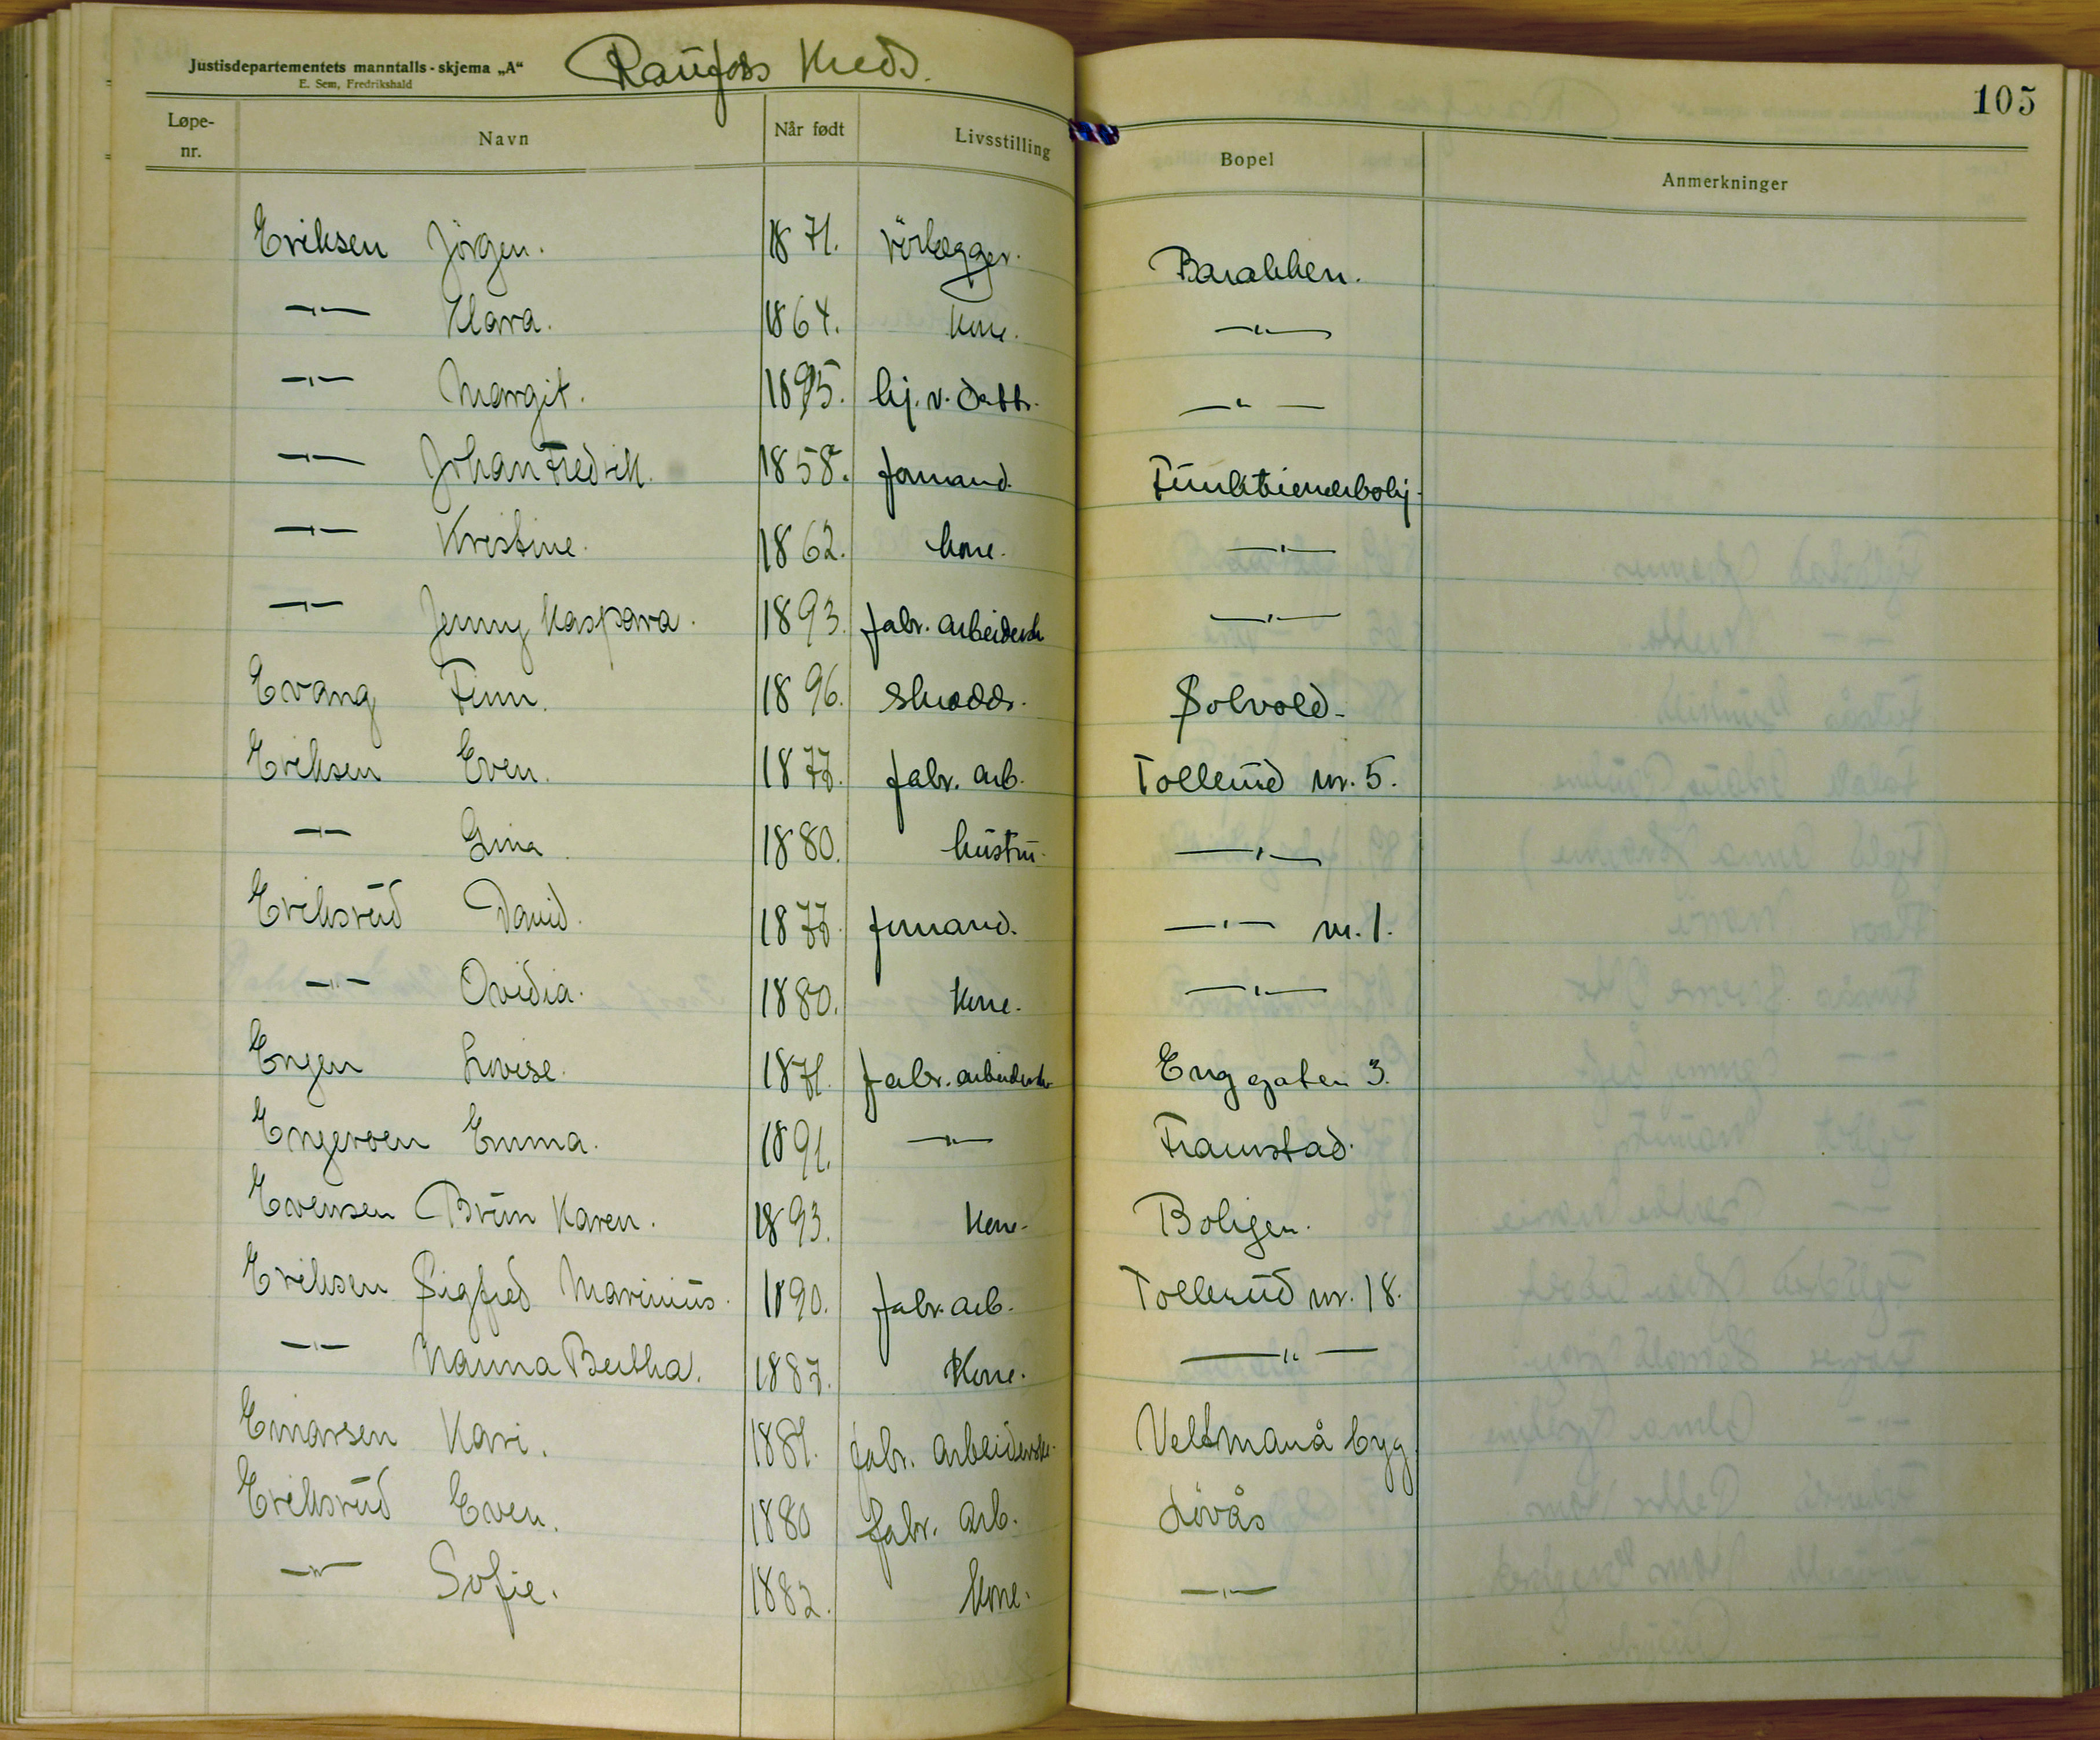 Justisdepartementets manntalls-skjema „A“ Raufoss Kreds.
E. Sem, Fredrikshald
105
Løpe-nr. Navn Når født Livsstilling Bopel Anmerkninger
Eriksen Jörgen. 1871. rörlægger. Barakken.
—"— Klara. 1864. Kone. —"—
—"— Margit. 1895. hj. v. datter. —"—
—"— Johan Fredrik. 1858. formand. Funktionærbolig.
—"— Kristine. 1862. kone. —"—
—"— Jenny Kaspara. 1893. fabr. arbeidersk —"—
Evang Finn. 1896. skrædd. Solvold.
Eriksen Even. 1877. fabr. arb. Tollerud nr. 5.
—"— Gina 1880. hustru. —"—
Eriksrud David. 1877. formand. —"— nr. 1.
—"— Ovidia. 1880. Kone. —"—
Engen Lovise. 1871. fabr. arbeiderske Enggaten 3.
Engeroen Emma. 1891. —"— Framstad.
Evensen Brun Karen. 1893. Kone. Boligen.
Eriksen Sigfred Marinius. 1890. fabr. arb. Tollerud nr. 18.
—"— Nanna Bertha. 1887. Kone. —"—
Einarsen Kari. 1889. fabr. arbeiderske. Veltmanå byg.
Eriksrud Even. 1880 fabr. arb. Lövås
—"— Sofie. 1882. kone. —"—